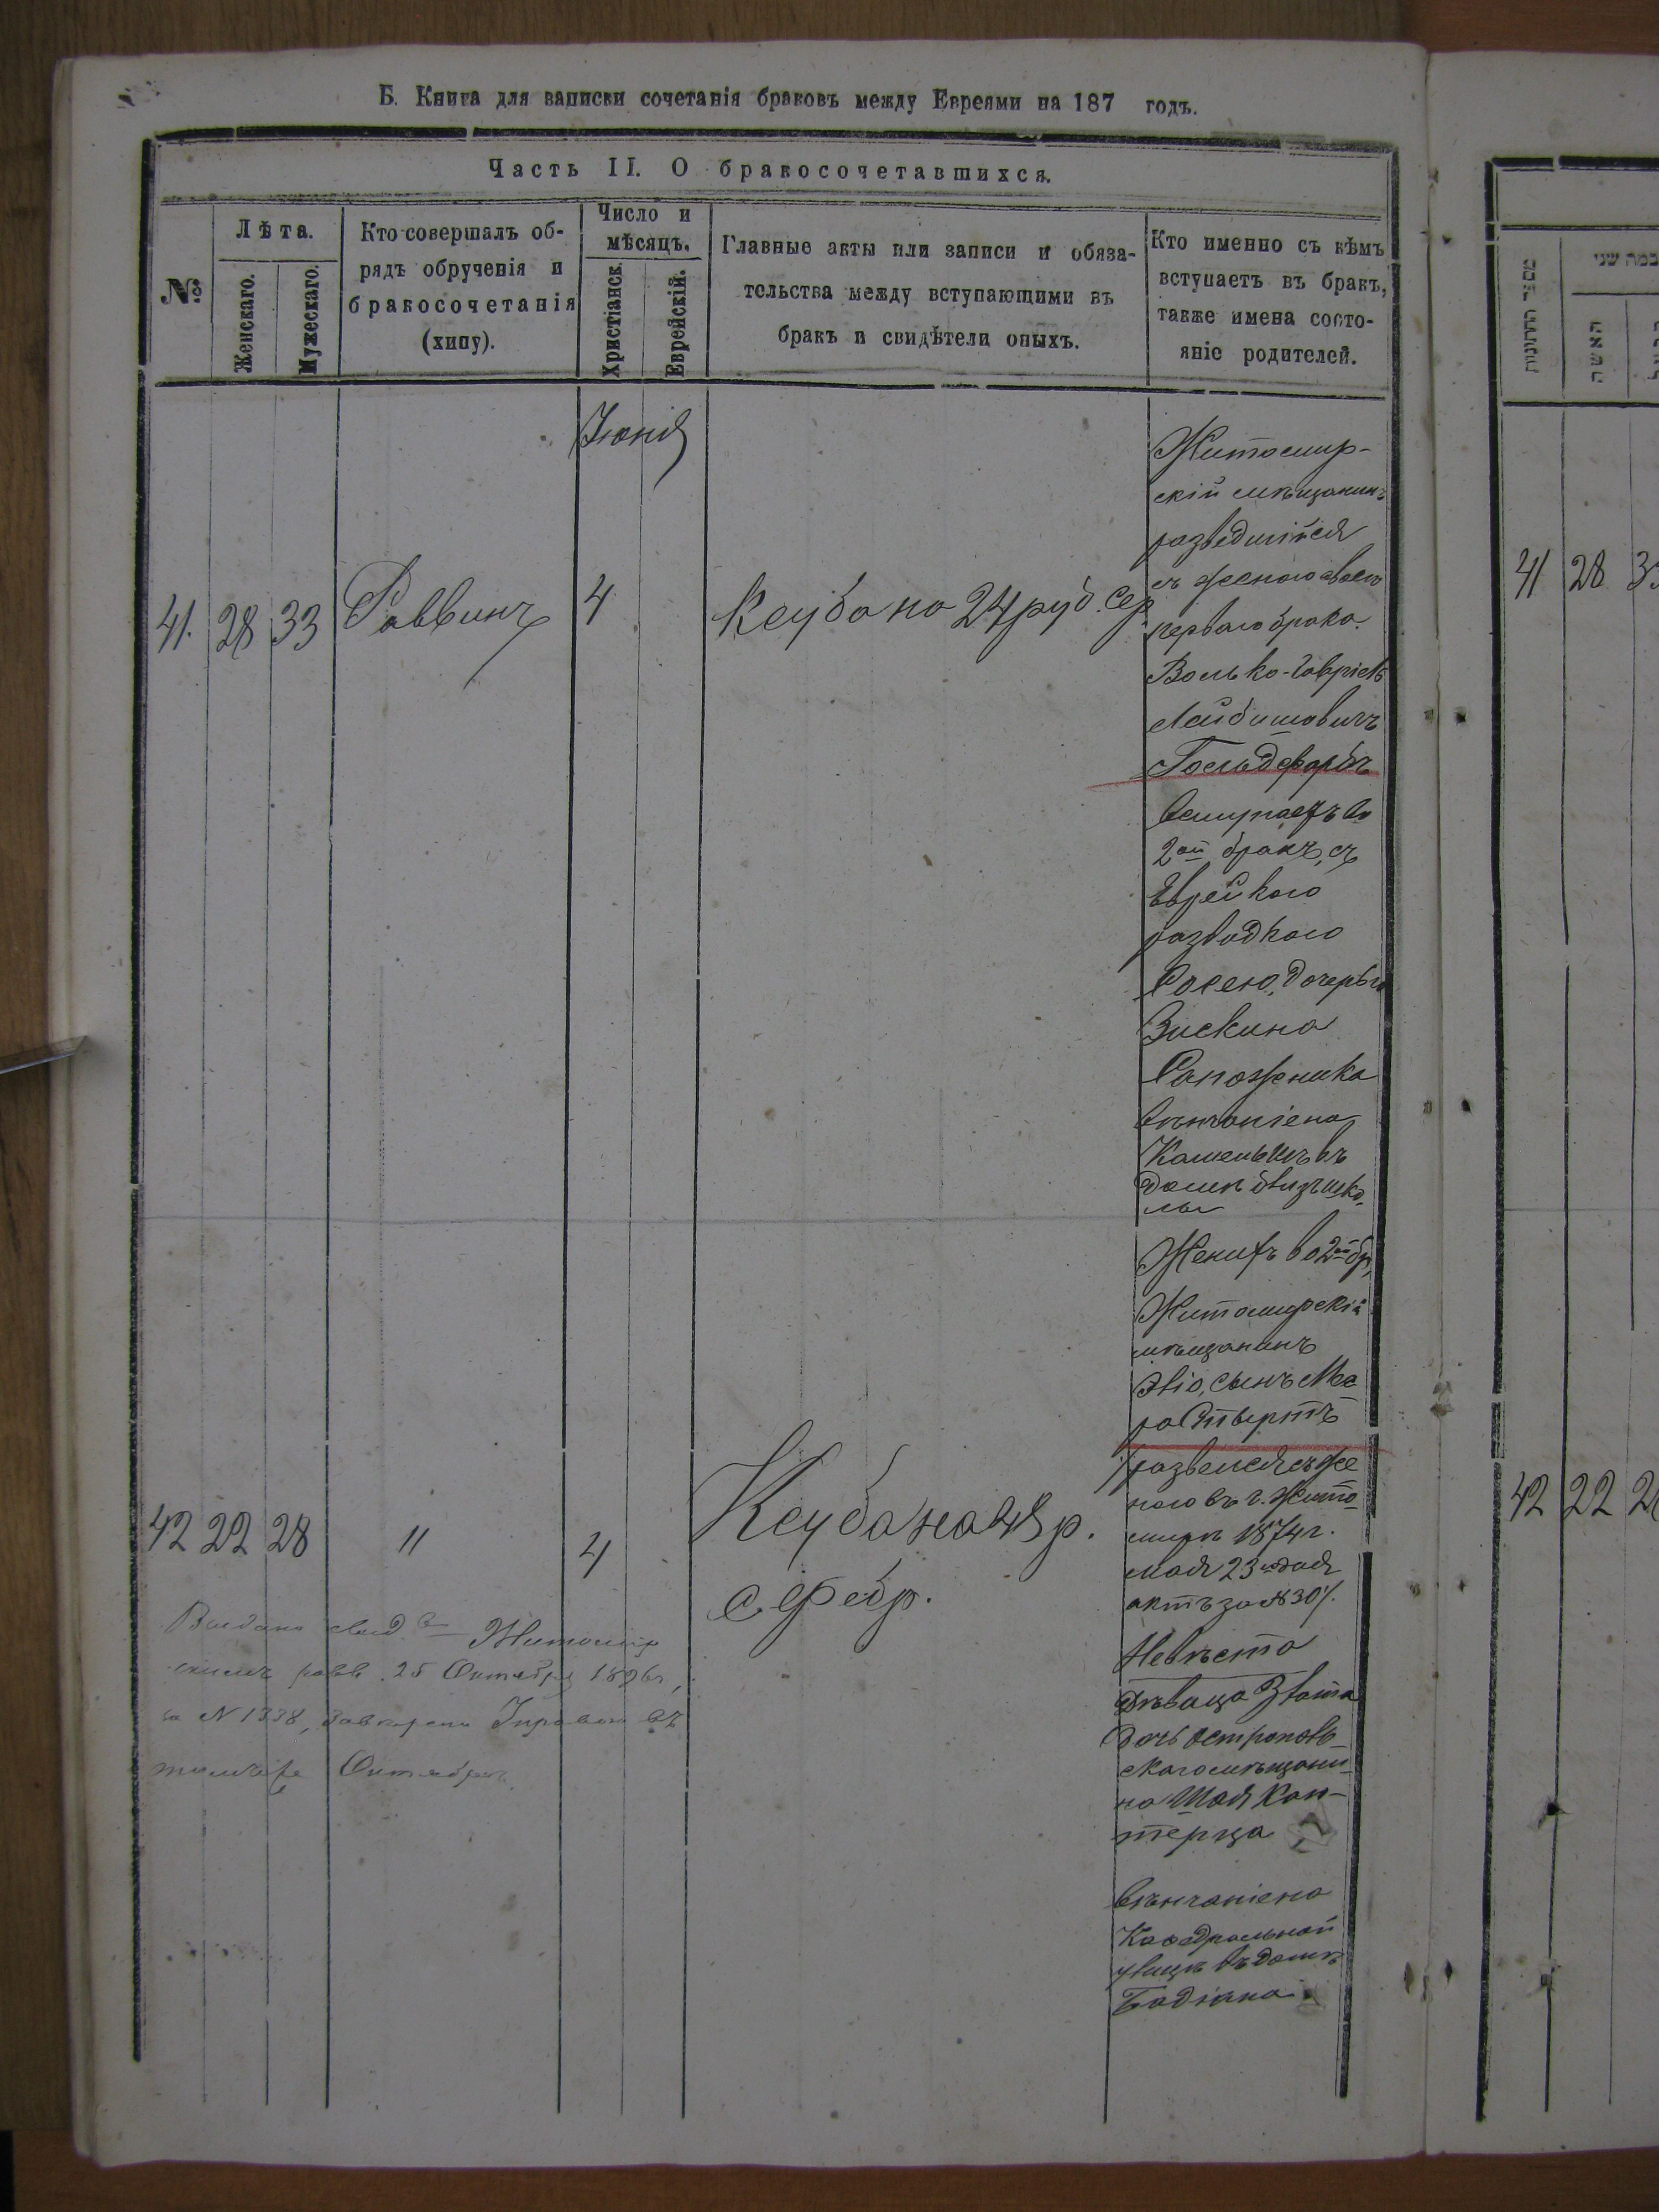 Б. Книга для записки сочетанія браковъ между Евреями на 187 годъ.
Часть II. О бракосочетавшихся.
№
Лѣта.
Женскаго.
Мужескаго.
Кто совершалъ об-
рядъ обрученія и
бракосочетанія
(хипу).
Число и
мѣсяцъ.
Христіанск.
Еврейскій.
Главные акты или записи и обяза-
тельства между вступающими въ
бракъ и свидѣтели оныхъ.
Кто именно съ кѣмъ
вступаетъ въ бракъ,
также имена состо-
яніе родителей.
Іюня
41. 28 33 Раввинъ 4 Ксуба на 24 руб. сер
Житомир-
скій мѣщанинъ
разведшійся
съ женою своею
перваго брака
Волько-Гавріель
Лейбишовичъ
Гольдфарбъ
вступаетъ во
2ой бракъ, съ
Еврейкою
разводкою
Сосею, дочерью
Зискина
Сапожника
вѣнчаніе на
въ
домѣ близъ шко-
лы
42 22 28 " 4 Ксуба на 48 р.
серебр.
Женихъ во 2ой бр,
Житомирскій
мѣщанинъ
сынъ Ме
ра
развелся съ же
ною въ г. Жито
мирѣ 1874 г.
мая 23 дня
актъ за №
Невѣста
дѣвица Злата
дочь Острополь-
скаго мѣщани-
на Шая Кан-
терца
вѣнчаніе на
Кафедральной
улицѣ въ домѣ
Бадіана
Выдано свид Житомір
скимъ равв. 25 Октября 1896 г,
за № 1338,
Октября
41 28 3
42 22 2